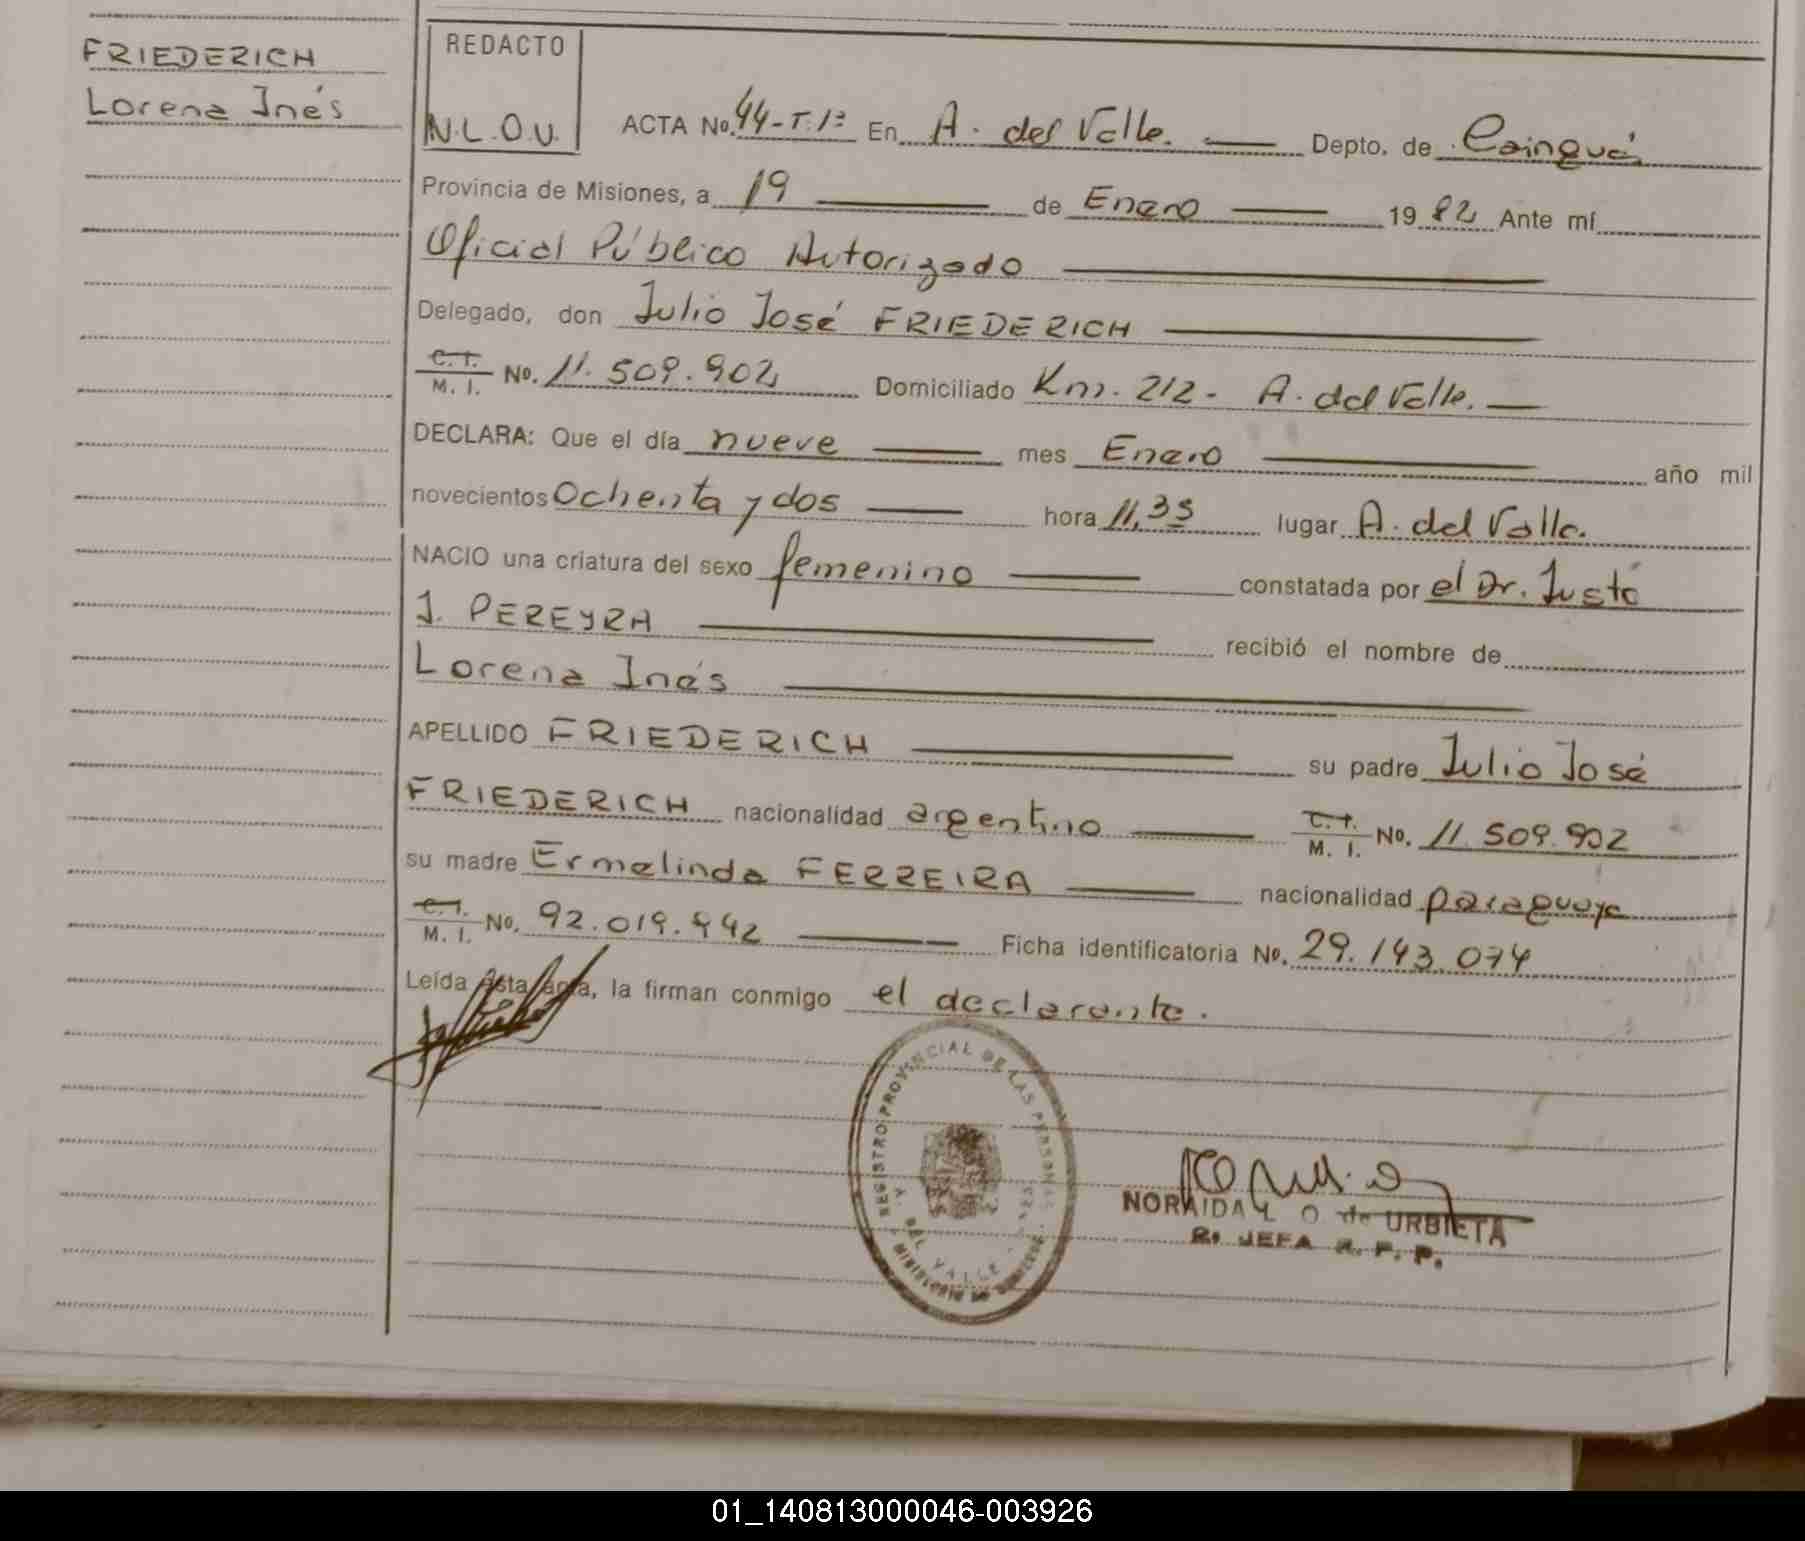 FRIEDERICH
Lorena Inés
REDACTO
N.L.O.U.
ACTA No. 44-T.1º En A. del Valle. Depto. de Cainguá
Provincia de Misiones, a 19 de Enero 19 82 Ante mí
Oficial Público Autorizado
Delegado, don Julio José FRIEDERICH
C.I. M. I. No. 11.509.902 Domiciliado Km. 212 - A. del Valle.
DECLARA: Que el día nueve mes Enero año mil
novecientos Ochenta y dos hora 11,35 lugar A. del Valle.
NACIO una criatura del sexo femenino constatada por el Dr. Justo
J. PEREYRA recibió el nombre de
Lorena Inés
APELLIDO FRIEDERICH su padre Julio José
FRIEDERICH nacionalidad argentino C.I. M. I. No. 11.509.902
su madre Ermelinda FERREIRA nacionalidad paraguaya
C.I. M. I. No. 92.019.442 Ficha identificatoria No. 29.143.074
Leída esta acta, la firman conmigo el declarante.
REGISTRO PROVINCIAL DE LAS PERSONAS
DEL VALLE
NORAIDA L O de URBIETA
R. JEFA R. P. P.
01_140813000046-003926